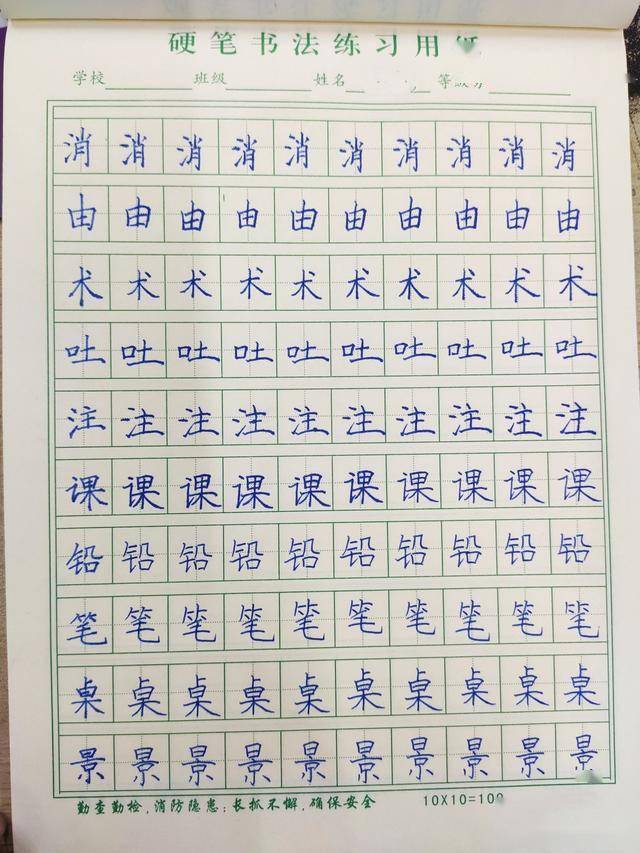 硬笔书法练习用
学校 班级 姓名 等
消消消消消消消消消消
由由由由由由由由由由
术术术术术术术术术术
吐吐吐吐吐吐吐吐吐吐
注注注注注注注注注注
课课课课课课课课课课
铅铅铅铅铅铅铅铅铅铅
笔笔笔笔笔笔笔笔笔笔
桌桌桌桌桌桌桌桌桌桌
景景景景景景景景景景
勤查勤检,消防隐患;长抓不懈,确保安全 10X10=100